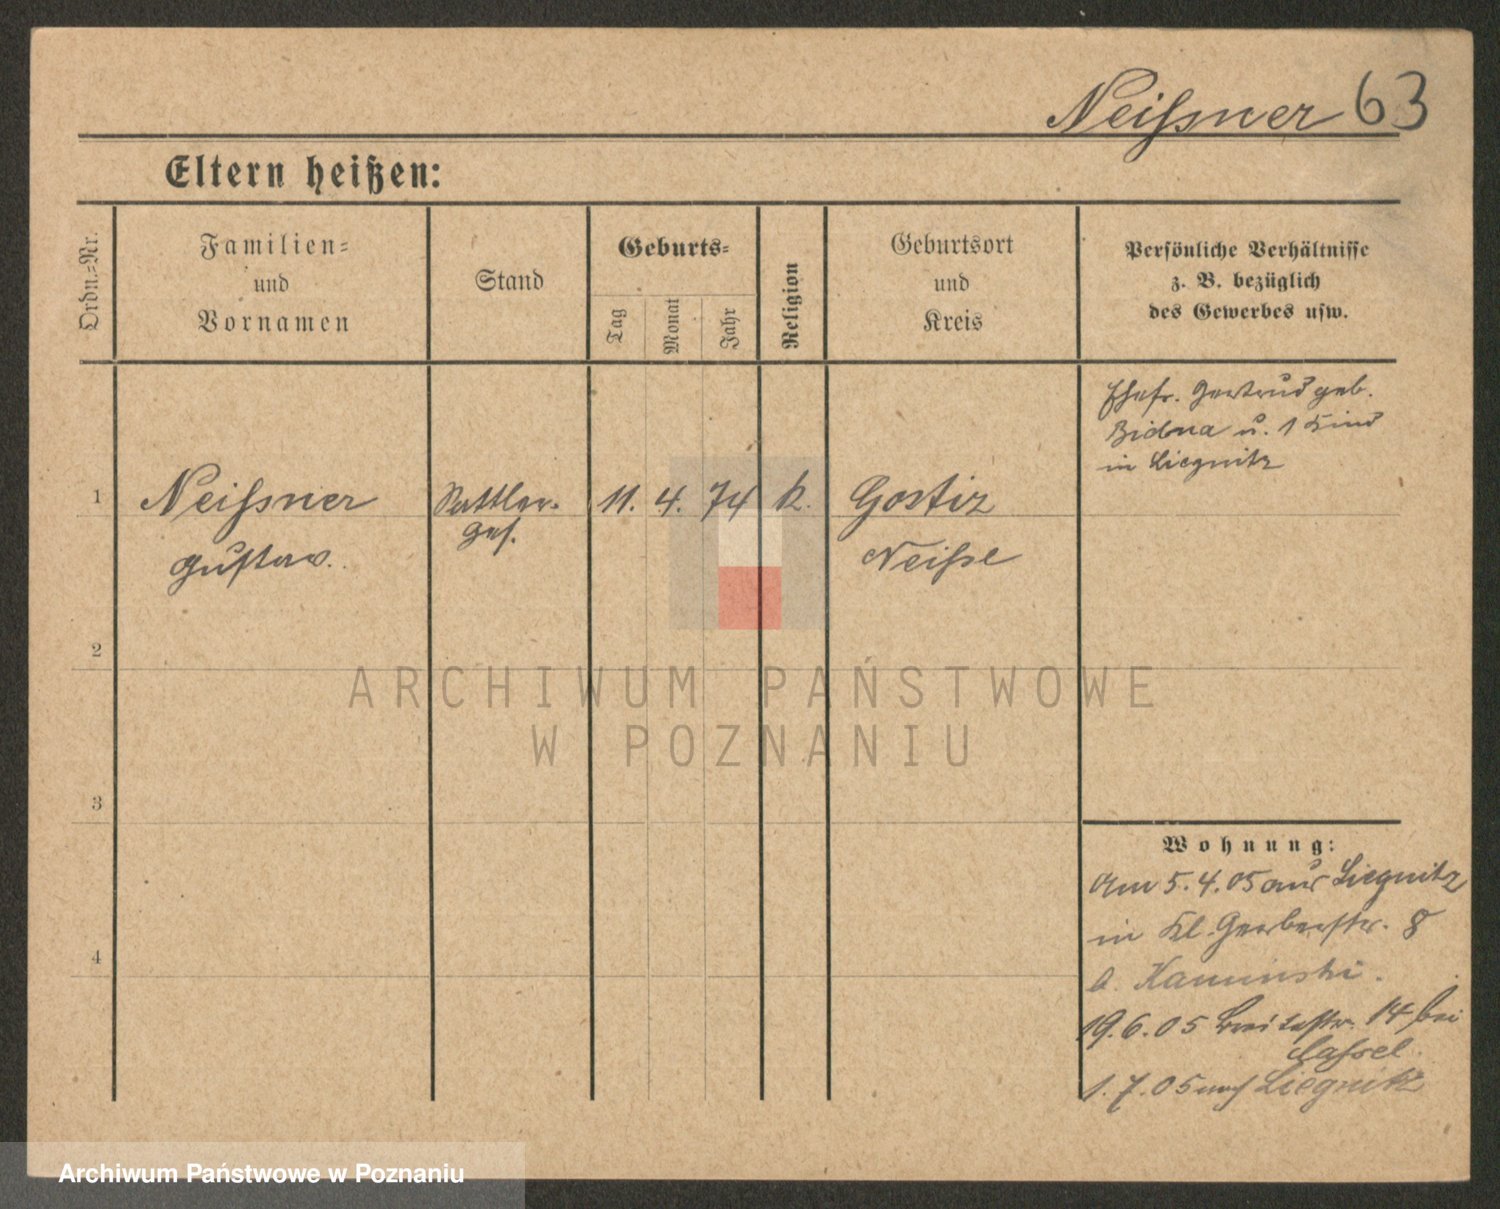 Neißner 63
Eltern heißen:
Ordn.=Nr.
Familien=
und
Vornamen
Stand
Geburts=
Tag
Monat
Jahr
Religion
Geburtsort
und
Kreis
Persönliche Verhältnisse
z. B. bezüglich
des Gewerbes usw.
Ehefr. Gertrud geb.
u. 1 Kind
in Liegnitz
1 Neißner Sattler- 11. 4. 74 k. Gostiz
Gustav. Ges. Neiße
2
3
4
Wohnung:
Am 5.4.05 aus Liegnitz
in Kl. Gerberstr. 8
b. Kaminski.
19.6.05 Breitestr. 14 bei
Cassel
1.7.05 nach Liegnitz
ARCHIWUM PAŃSTWOWE
W POZNANIU
Archiwum Państwowe w Poznaniu